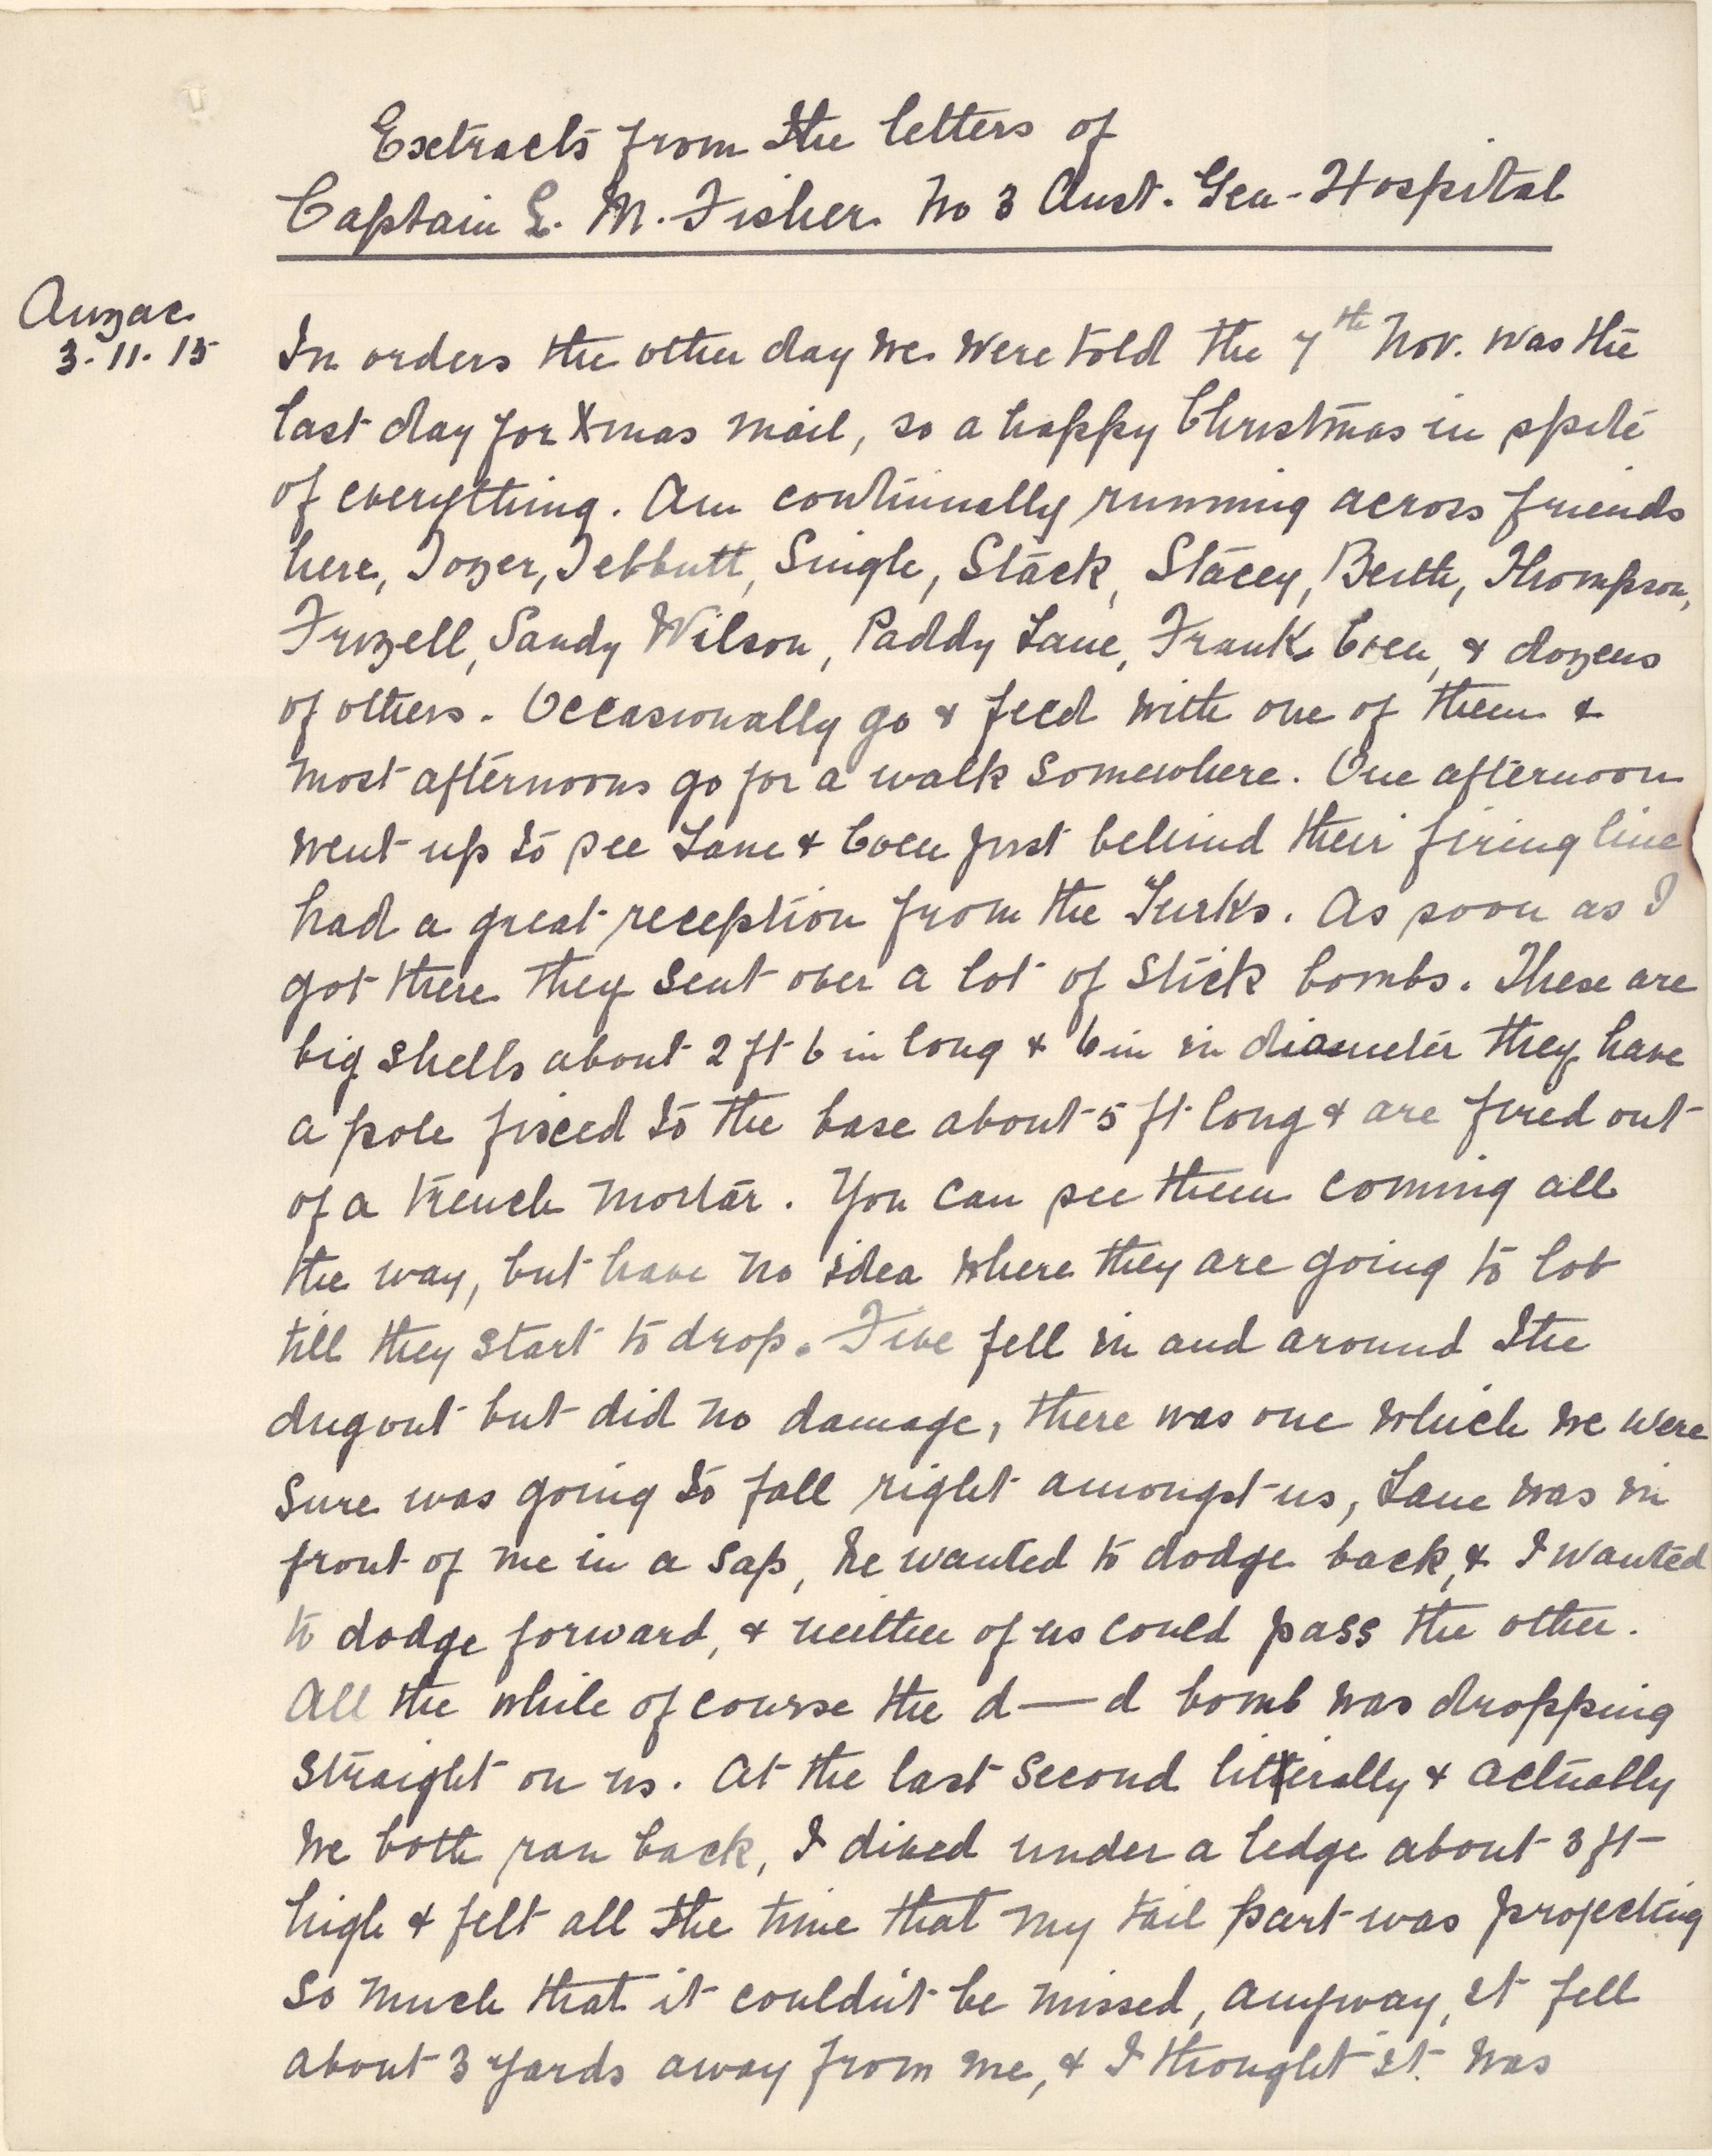 Extracts from the letters of
Captain E. M. Fisher No 3 Aust. Gen-Hospital
Anzac
3-11-15
In orders the other day we were told the 7th Nov. was the
last day for Xmas mail, so a happy Christmas in spite
of everything. Am continually running across friends
here, Tozer, Tebbutt, Single, Stack, Stacey, Beith, Thompson,
Frizell, Sandy Wilson, Paddy Lane, Frank Coen, & dozens
of others. Occasionally go & feed with one of them &
most afternoons go for a walk somewhere. One afternoon
went up to see Lane & Coen just behind their firing line
had a great reception from the Turks. As soon as I
got there they sent over a lot of stick bombs. These are
big shells about 2 ft 6 in long & 6 in in diameter they have
a pole fixed to the base about 5 ft long & are fired out
of a trench mortar. You can see them coming all
the way, but have no idea where they are going to lob
till they start to drop. Five fell in and around the
dugout but did no damage, there was one which we were
sure was going to fall right amongst us, Lane was in
front of me in a sap, he wanted to dodge back, & I wanted
to dodge forward, & neither of us could pass the other.
All the while of course the d—d bomb was dropping
straight on us. At the last second literally & actually
we both ran back, I dived under a ledge about 3 ft
high & felt all the time that my tail part was projecting
so much that it couldn't be missed, anyway, it fell
about 3 yards away from me, & I thought it was